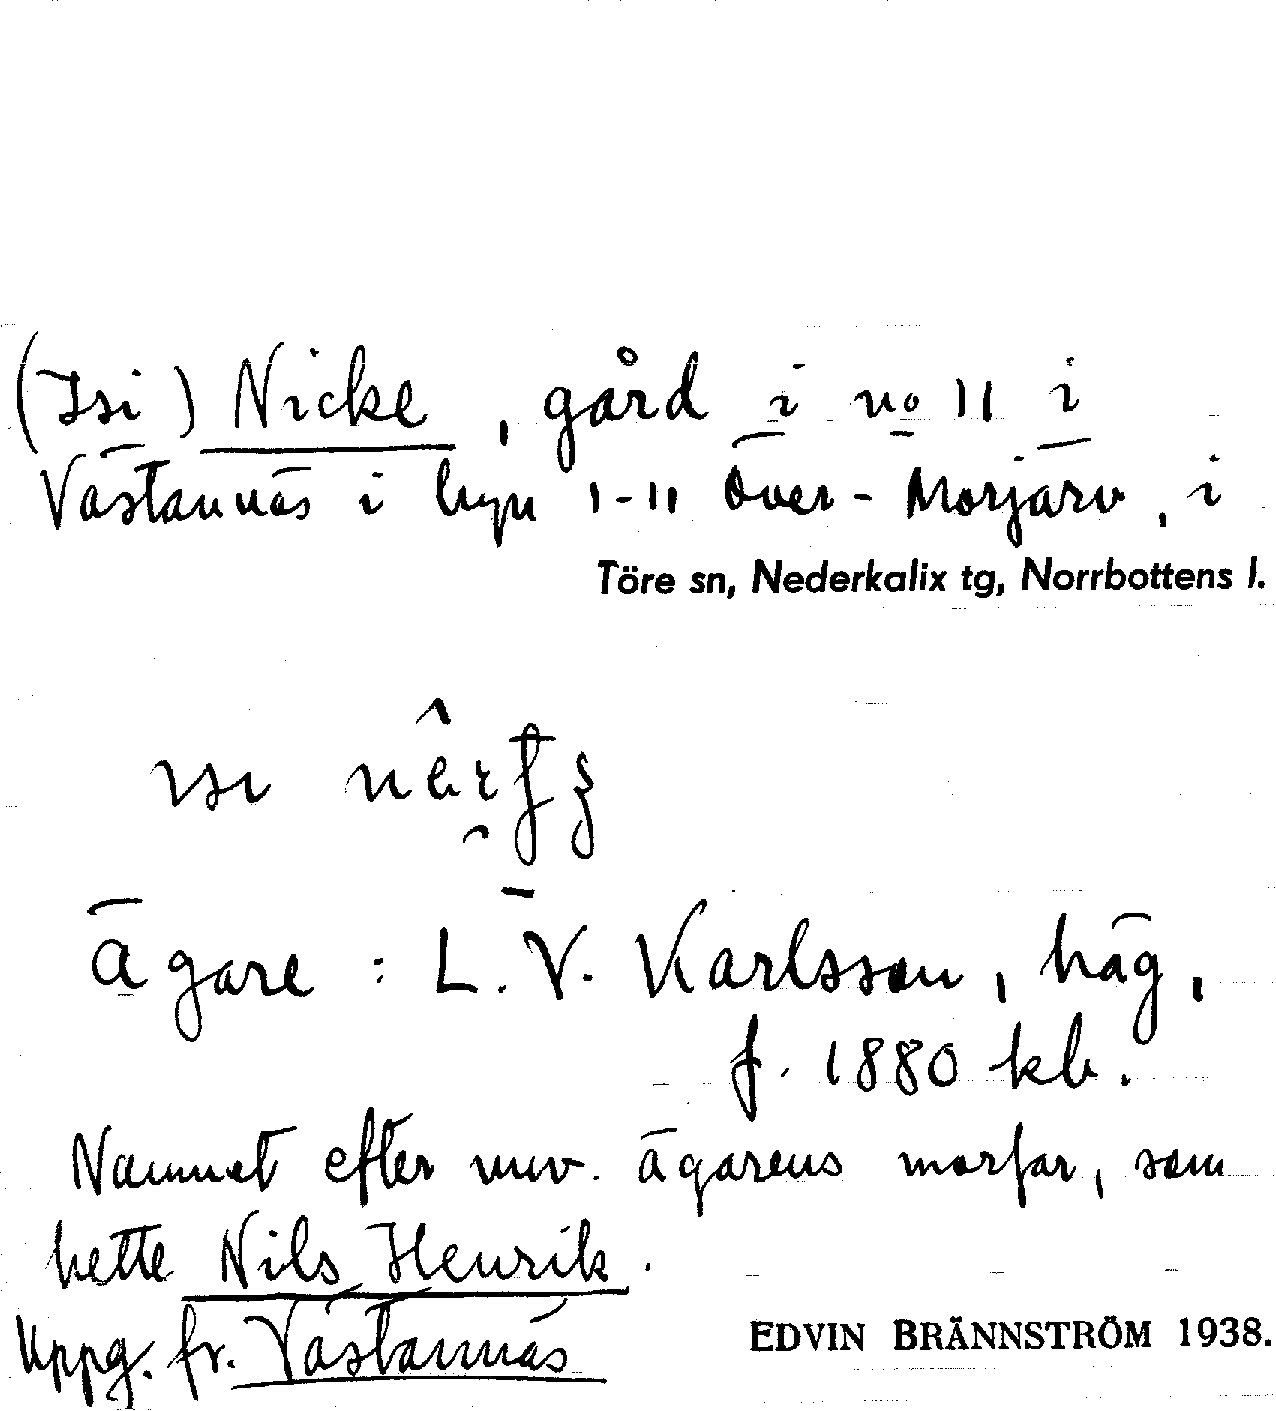 (Isi) Nicke, gård i no 11 i
Västannäs i byn 1-11 Över-Morjärv, i
Töre sn, Nederkalix tg, Norrbottens l.
ısı
Ägare: L. V. Karlsson, häg,
f. 1880 kb.
Namnet efter nuv. ägarens morfar, som
hette Nils Henrik.
Uppg. fr. Västannäs
EDVIN BRÄNNSTRÖM 1938.